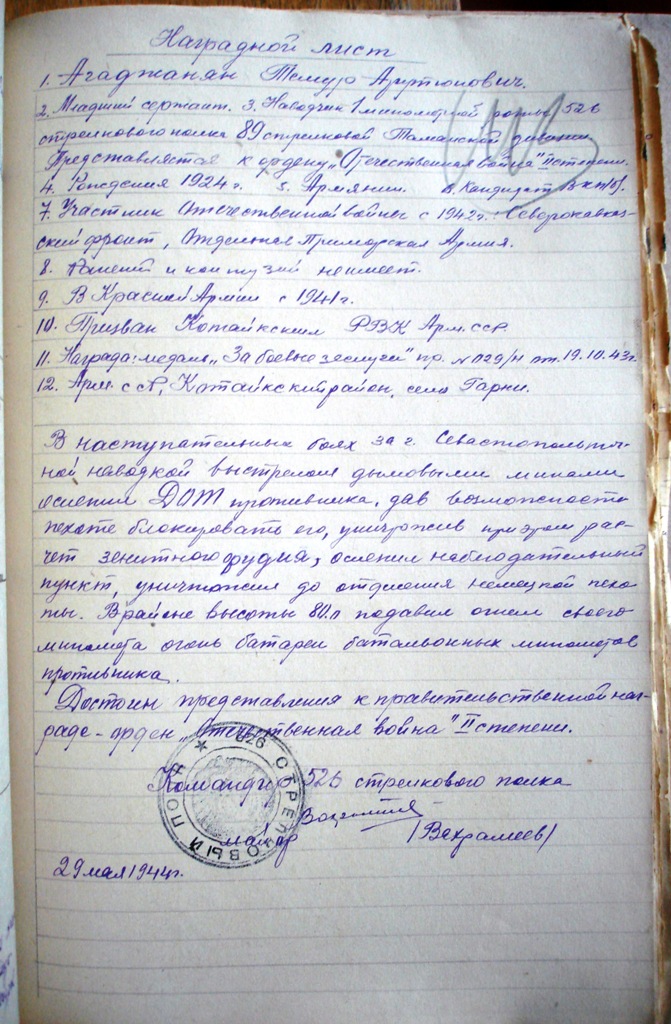 Наградной лист
1. Агаджанян Темур Арутюнович.
2. Младший сержант. 3. Наводчик 1 минометной роты 526
стрелкового полка 89 стрелковой Таманской дивизии
Представляется к ордену „Отечественная война" II степени.
4. Рождения 1924 г. 5. Армянин. 6. Кандидат ВКП(б).
7. Участник Отечественной войны с 1942 г. Северокавказ-
ский фронт, Отдельная Приморская Армия.
8. Ранений и контузий не имеет.
9. В Красной Армии с 1941 г.
10. Призван Котайкским РВК Арм.ССР
11. Награда: медаль „За боевые заслуги" пр. №029/н от. 19.10.43 г.
12. Арм. ССР, Котайкский район, село Гарни.
В наступательных боях за г. Севастополь точ-
ной наводкой выстрелом дымовыми минами
ослепил ДОТ противника, дав возможность
пехоте блокировать его, уничтожив при этом рас-
чет зенитного орудия, ослепил наблюдательный
пункт, уничтожил до отделения немецкой пехо-
ты. В районе высоты 80.0 подавил огнем своего
миномета огонь батареи батальонных минометов
противника.
Достоин представления к правительственной наг-
раде - орден „Отечественная война" II степени.
Командир 526 стрелкового полка
майор /Вахрамеев/
29 мая 1944 г.
★ 526 СТРЕЛКОВЫЙ ПОЛК